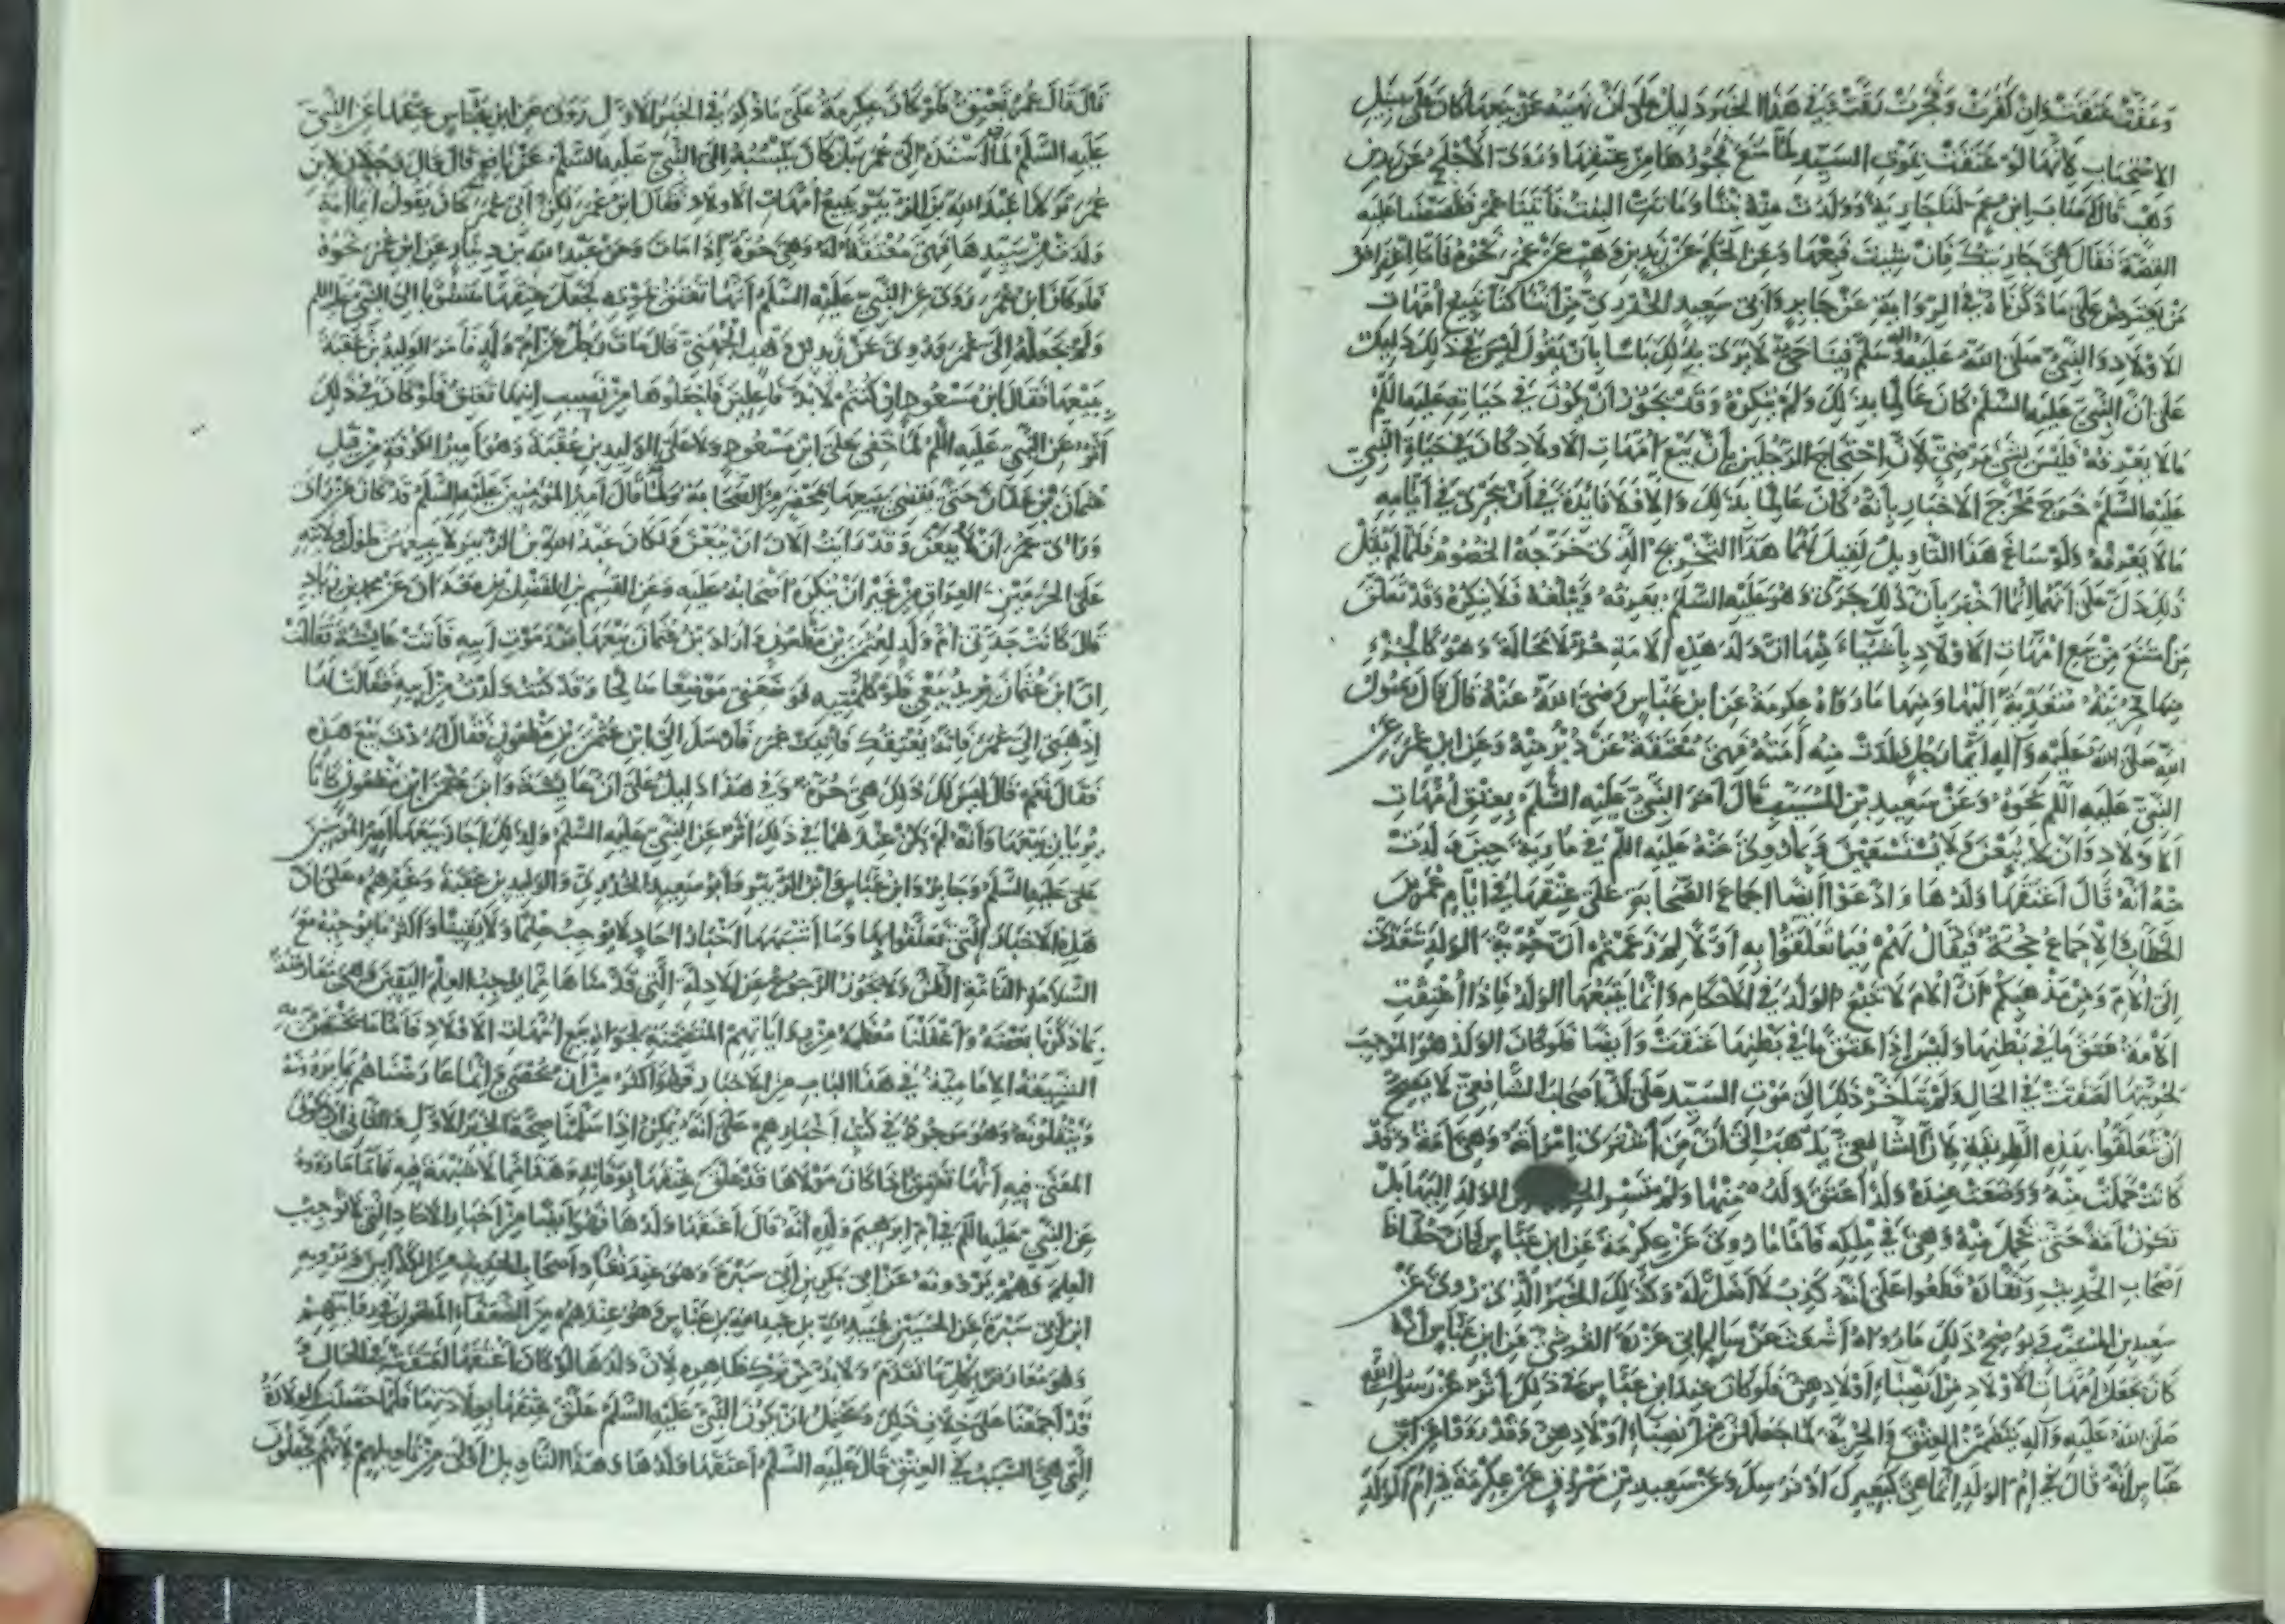 وعفّت عتقت وان كفرت وفجرت رقّت ففي هذا الخبر دليل على ان نهيه عن بيعها كان على سبيل
الاستحباب لأنها لو عتقت بموت السيد لما منع فجورها من عتقها وروى الأجلح عن زيد بن
وهب قال مات ابن عم لنا جارية وولدت منه بنتا وماتت البنت فأتينا عمر فقصصنا عليه
القصة فقال هي جاريتك فان شئت فبعها وعن الحكم عن زيد بن وهب عن عمر نحوه فأما اعتراض
من يعترض على ما ذكرناه في الرواية عن جابر وأبي سعيد الخدري من اننا كنا نبيع أمهات
الاولاد والنبي صلى الله عليه وآله وسلم فينا حي لا يرى بذلك بأسا بأن يقول ليس في ذلك دليل
على أن النبي عليه السلم كان عالما بذلك ولم ينكره وقد يجوز أن يكون في حياته عليه السلم
مالا يعرفه فليس بشيء مرضي لان احتجاج الرجلين بأن بيع أمهات الاولاد كان في حياة النبي
عليه السلم خرج مخرج الاخبار بأنه كان عالما بذلك والا فلا فائدة في أن يجرى في أيامه
مالا يعرفه ولو ساغ هذا التأويل لقيل لهما هذا التخريج الذي خرجه الخصوم فلما لم يقل
ذلك دل على أنهما إنما أخبرا بأن ذلك جرى وهو عليه السلم يعرفه ويبلغه فلا ينكره وقد تعلق
من امتنع من بيع امهات الاولاد بأشياء منها ان ولد هذه الامة حر لا محالة وهو كالجزء
منها فحريته متعدية اليها ومنها ما رواه عكرمة عن ابن عباس رضى الله عنه قال قال رسول
الله صلى الله عليه وآله ايما رجل ولدت منه أمته فهي معتقة عن دبر منه وعن ابن عمر عن
النبي عليه السلم نحوه وعن سعيد بن المسيب قال أمر النبي عليه السلم بعتق أمهات
الاولاد وان لا يبعن ولا يستسعين وبما روى عنه عليه السلم في مارية حين ولدت
منه أنه قال أعتقها ولدها وادعوا ايضا اجماع الصحابة على عتقها في ايام عمر بن
الخطاب والاجماع حجة فيقال لهم فيما تعلقوا به أولا لم زعمتم أن حرية الولد تتعدى
إلى الام ومن مذهبكم أن الام لا تتبع الولد في الاحكام وانما يتبعها الولد فاذا أعتقت
الأمة عتق ما في بطنها وليس إذا عتق ما في بطنها عتقت وأيضا فلو كان الولد هو الموجب
لحريتها لعتقت في الحال ولم يتأخر ذلك الى موت السيد على أن أصحاب الشافعي لا يصح
أن تعلقوا بهذه الطريقة لان الشافعي يذهب إلى أن من اشترى امرأته وهي أمة وقد
كانت حملت منه ووضعت عنده ولدا عتق ولده منها ولم تسر الولد اليها بل
تكون أمة حتى تحمل منه وهي في ملكه فأما ما روى عن عكرمة عن ابن عباس فان حفاظ
أصحاب الحديث ونقاده قطعوا على أنه كذب لا أصل له وكذلك الخبر الذي روى عن
سعيد بن المسيب ويوضح ذلك ما رواه أشعث عن سالم ابي عزرة القرشي عن ابن عباس أنه
كان يجعل امهات الاولاد من انصباء أولادهن فلو كان عند ابن عباس في ذلك أثر عن رسول الله
صلى الله عليه وآله يتضمن العتق والحرية لما جعلهن من أنصباء أولادهن وقد رواه ابن
عباس أنه قال في أم الولد انما هي كبعيرك أو فرسك وعن سعيد بن مسروق عن عكرمة في أم الولد
قال قال عمر تعتق فلو كان عكرمة على ما ذكر في الخبر الاول روى عن ابن عباس عتقها عن النبي
عليه السلم لما أسنده الى عمر بل كان ينسبه إلى النبي عليه السلم عن نافع قال قال رجلان لابن
عمر تركنا عبد الله بن الزبير يبيع أمهات الاولاد فقال ابن عمر لكن أبي عمر كان يقول أيما أمة
ولدت من سيدها فهي معتقة له وهي حرة إذا مات وعن عبد الله بن دينار عن ابن عمر نحوه
فلو كان ابن عمر روى عن النبي عليه السلم أنها تعتق بموته لجعل عتقها منسوبا الى النبي عليه السلم
ولم يجعله إلى عمر وروى عن زيد بن وهب الجهني قال مات رجل عن أم ولد فأمر الوليد بن عقبة
ببيعها فقال ابن مسعود ان كنتم لا بد فاعلين فاجعلوها من نصيب ابنها تعتق فلو كان في ذلك
أثر عن النبي عليه السلم لما خفي على ابن مسعود ولا على الوليد بن عقبة وهو أمير الكوفة من قبل
عثمان بن عفان حتى يقضي ببيعها بمحضر من الصحابة ولما قال أمير المؤمنين عليه السلم قد كان من رأي
ورأى عمر أن لا يبعن وقد رأيت الآن ان يبعن وكان عبد الله بن الزبير ولا يبيعهن طول ولايته
على الحرمين والعراق من غير ان ينكره أصحابه عليه وعن القسم بن الفضل بن معدان عن محمد بن زياد
قال كانت جدتي أم ولد لعثمن بن مظعون وأراد ابن عثمان بيعها بعد موت أبيه فأتت عايشة فقالت
ان ابن عثمان يريد بيعي فلو كلمتيه لو ضعني موضعا صالحا وقد كنت ولدت من ابيه فقالت لها
اذهبي إلى عمر فانه يعتقك فأتيت عمر فأرسل إلى ابن عثمن بن مظعون فقال أردت بيع هذه
فقال نعم قال ليس لك ذلك هي حرة وفي هذا دليل على أن عايشة وابن عثمن ابن مظعون كانا
يريان بيعها وأنه لم يكن عندهما في ذلك أثر عن النبي عليه السلم ولذلك أجاز بيعها أمير المؤمنين
على عليه السلم وجابر وابن عباس وابن الزبير وأبو سعيد الخدري والوليد بن عقبة وغيرهم على أن
هذه الاخبار التي تعلقوا بها وما أشبهها أخبار آحاد لا يوجب علما ولا يقينا وأكثر ما يوجبه مع
السلامة التامة الظن ولا يجوز الرجوع عن الادلة التي قدمناها مما يوجب العلم اليقين وهي معارضة
بما ذكرنا بعضه وأغفلنا معظمه من رواياتهم المتضمنة لجواز بيع امهات الاولاد فأما ما تختص به
الشيعة الامامية في هذا الباب من الاخبار فهو أكثر من أن يحصى وانما عارضناهم بما يروونه
وينقلونه وهو موجود في كتب أخبارهم على أنه يمكن إذا سلمنا صحة الخبر الاول والثاني أن يكون
المعنى فيه أنها تعتق إذا كان مولاها قد علق عتقها بوفاته وهذا مما لا شبهة فيه فأما ما رووه
عن النبي عليه السلم في أم ابرهيم ولده أنه قال أعتقها ولدها فهو أيضا من أخبار الآحاد التي لا توجب
العلم وهم يروونه عن أبي بكر بن أبي سبرة وهو عند نقاد أصحاب الحديث من الكذابين ويرويه
ابن أبي سبرة عن الحسين بن عبد الله بن عبيد الله بن عباس وهو عندهم من الضعفاء المطعون في روايتهم
وهو معارض بكل ما تقدم ولا بد من ترك ظاهره لان ولدها لو كان أعتقها لعتقت في الحال
قد أجمعنا على خلاف ذلك ويحتمل ان يكون النبي عليه السلم علق عتقها بولادتها فلما حصلت الولادة
التي هي السبب في العتق قال عليه السلم أعتقها ولدها وهذا التأويل أولى من تأويلهم لانهم يجعلون